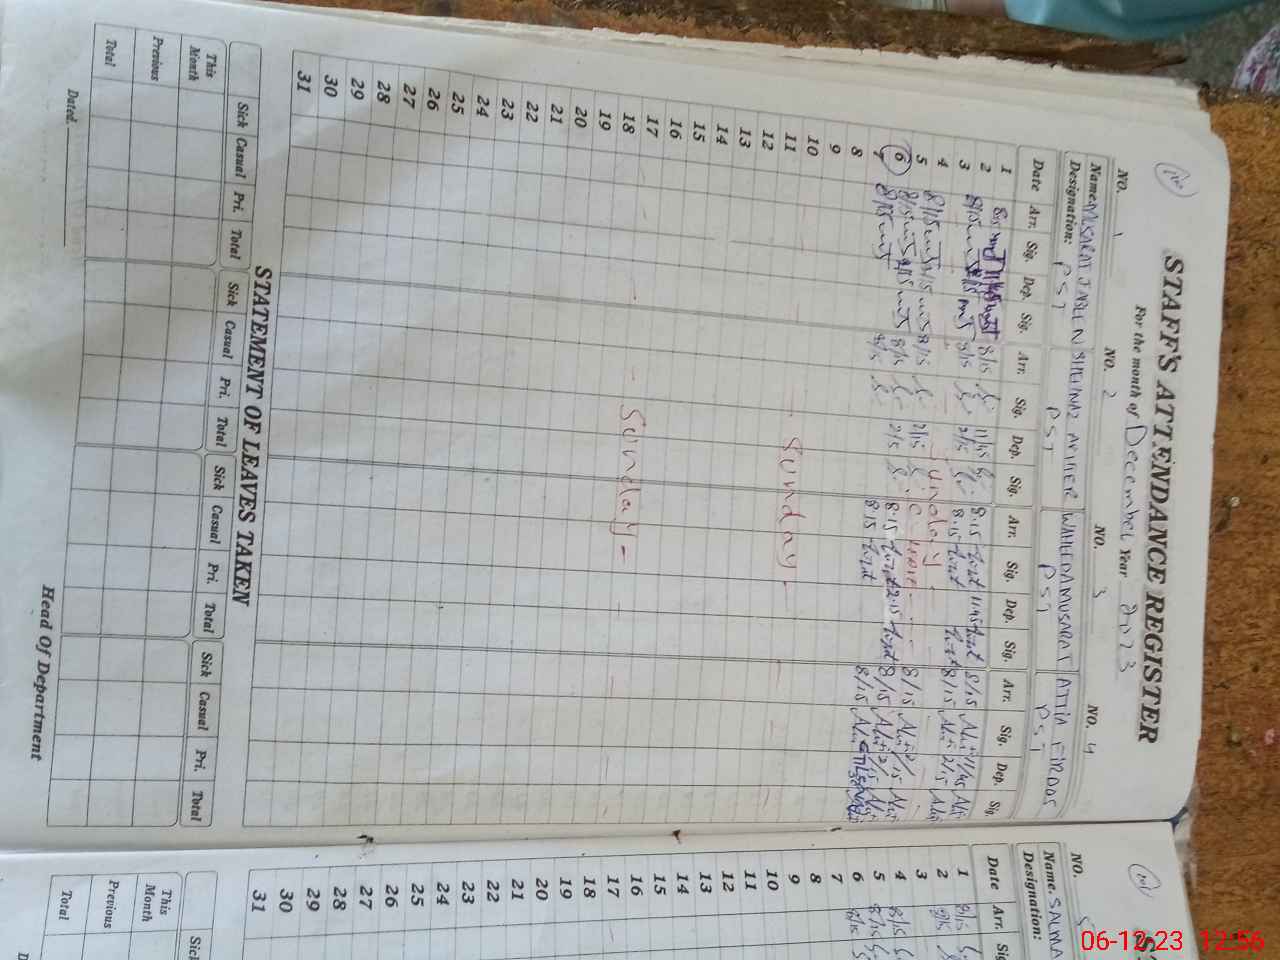 STAFF'S ATTENDANCE REGISTER
For the month of December Year 2023
NO. 1 NO. 2 NO. 3 NO. 4
Name: MUSARAT JABEEN SHEHNAZ AKHTER WAHEEDA MUSARAT ATTIA FIRDOS
Designation: PST PST PST PST
Date Arr. Sig. Dep. Sig. Arr. Sig. Dep. Sig. Arr. Sig. Dep. Sig. Arr. Sig. Dep. Sig.
1 8/15 11/45 8/15 11/45 8.15 11.45 8/15 11/45
2 8/15 2/15 8/15 2/15 8.15 8/15 2/15
3 Sunday
4 8/15 2/15 8/15 2/15 C leave 8/15 2/15
5 8/15 2/15 8/15 2/15 8.15 2.15 8/15 2/15
6 8/15 8/15 8.15 8/15
7
8
9
10 Sunday
11
12
13
14
15
16
17 Sunday
18
19
20
21
22
23
24
25
26
27
28
29
30
31
STATEMENT OF LEAVES TAKEN
Sick Casual Pri. Total Sick Casual Pri. Total Sick Casual Pri. Total Sick Casual Pri. Total
This Month
Previous
Total
Dated.
Head Of Department
NO. 5
Name. SALMA
Designation:
Date Arr.
1 8/15
2 8/15
3
4 8/15
5 8/15
6 8/15
7
8
9
10
11
12
13
14
15
16
17
18
19
20
21
22
23
24
25
26
27
28
29
30
31
Sick
This Month
Previous
Total
06-12-23 12:56